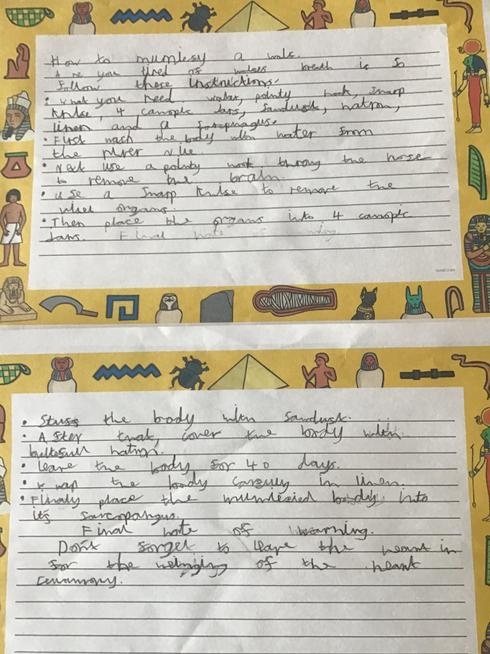 How to mumIesy a wals.
Are you tired of walses breath is so
follow these instructions.
• what you need water, pointy hook, sharp
knife, 4 canopic Jars, Sandusk, natron,
linen and a sarcphaguse.
• First wash the body with water from
the river nile.
• Next use a pointy hook throug the nose
to remove the brain.
• use a sharp knife to remove the
other organs.
• Then place the organs into 4 canopic
Jars. Final note of
• Stuff the body with Sandusk.
• After that, cover the body with
butefull natron.
• leave the body for 40 days.
• wrap the body carefuly in linen.
• Finaly place the mumified body into
its sarcopahgus.
Final note of warning.
Dont forget to leave the heart in
for the weinging of the heart
cerammony.